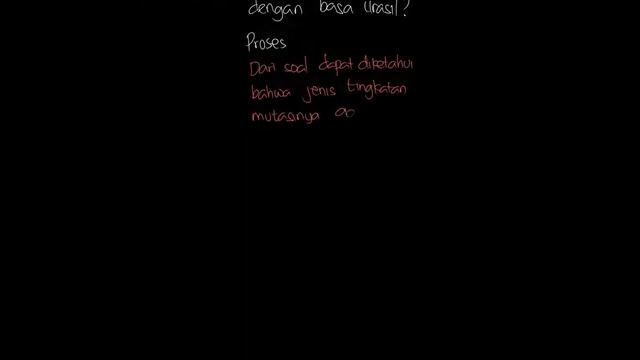 dengan basa Urasil?
Proses
Dari soal dapat diketahui
bahwa jenis tingkatan
mutasinya